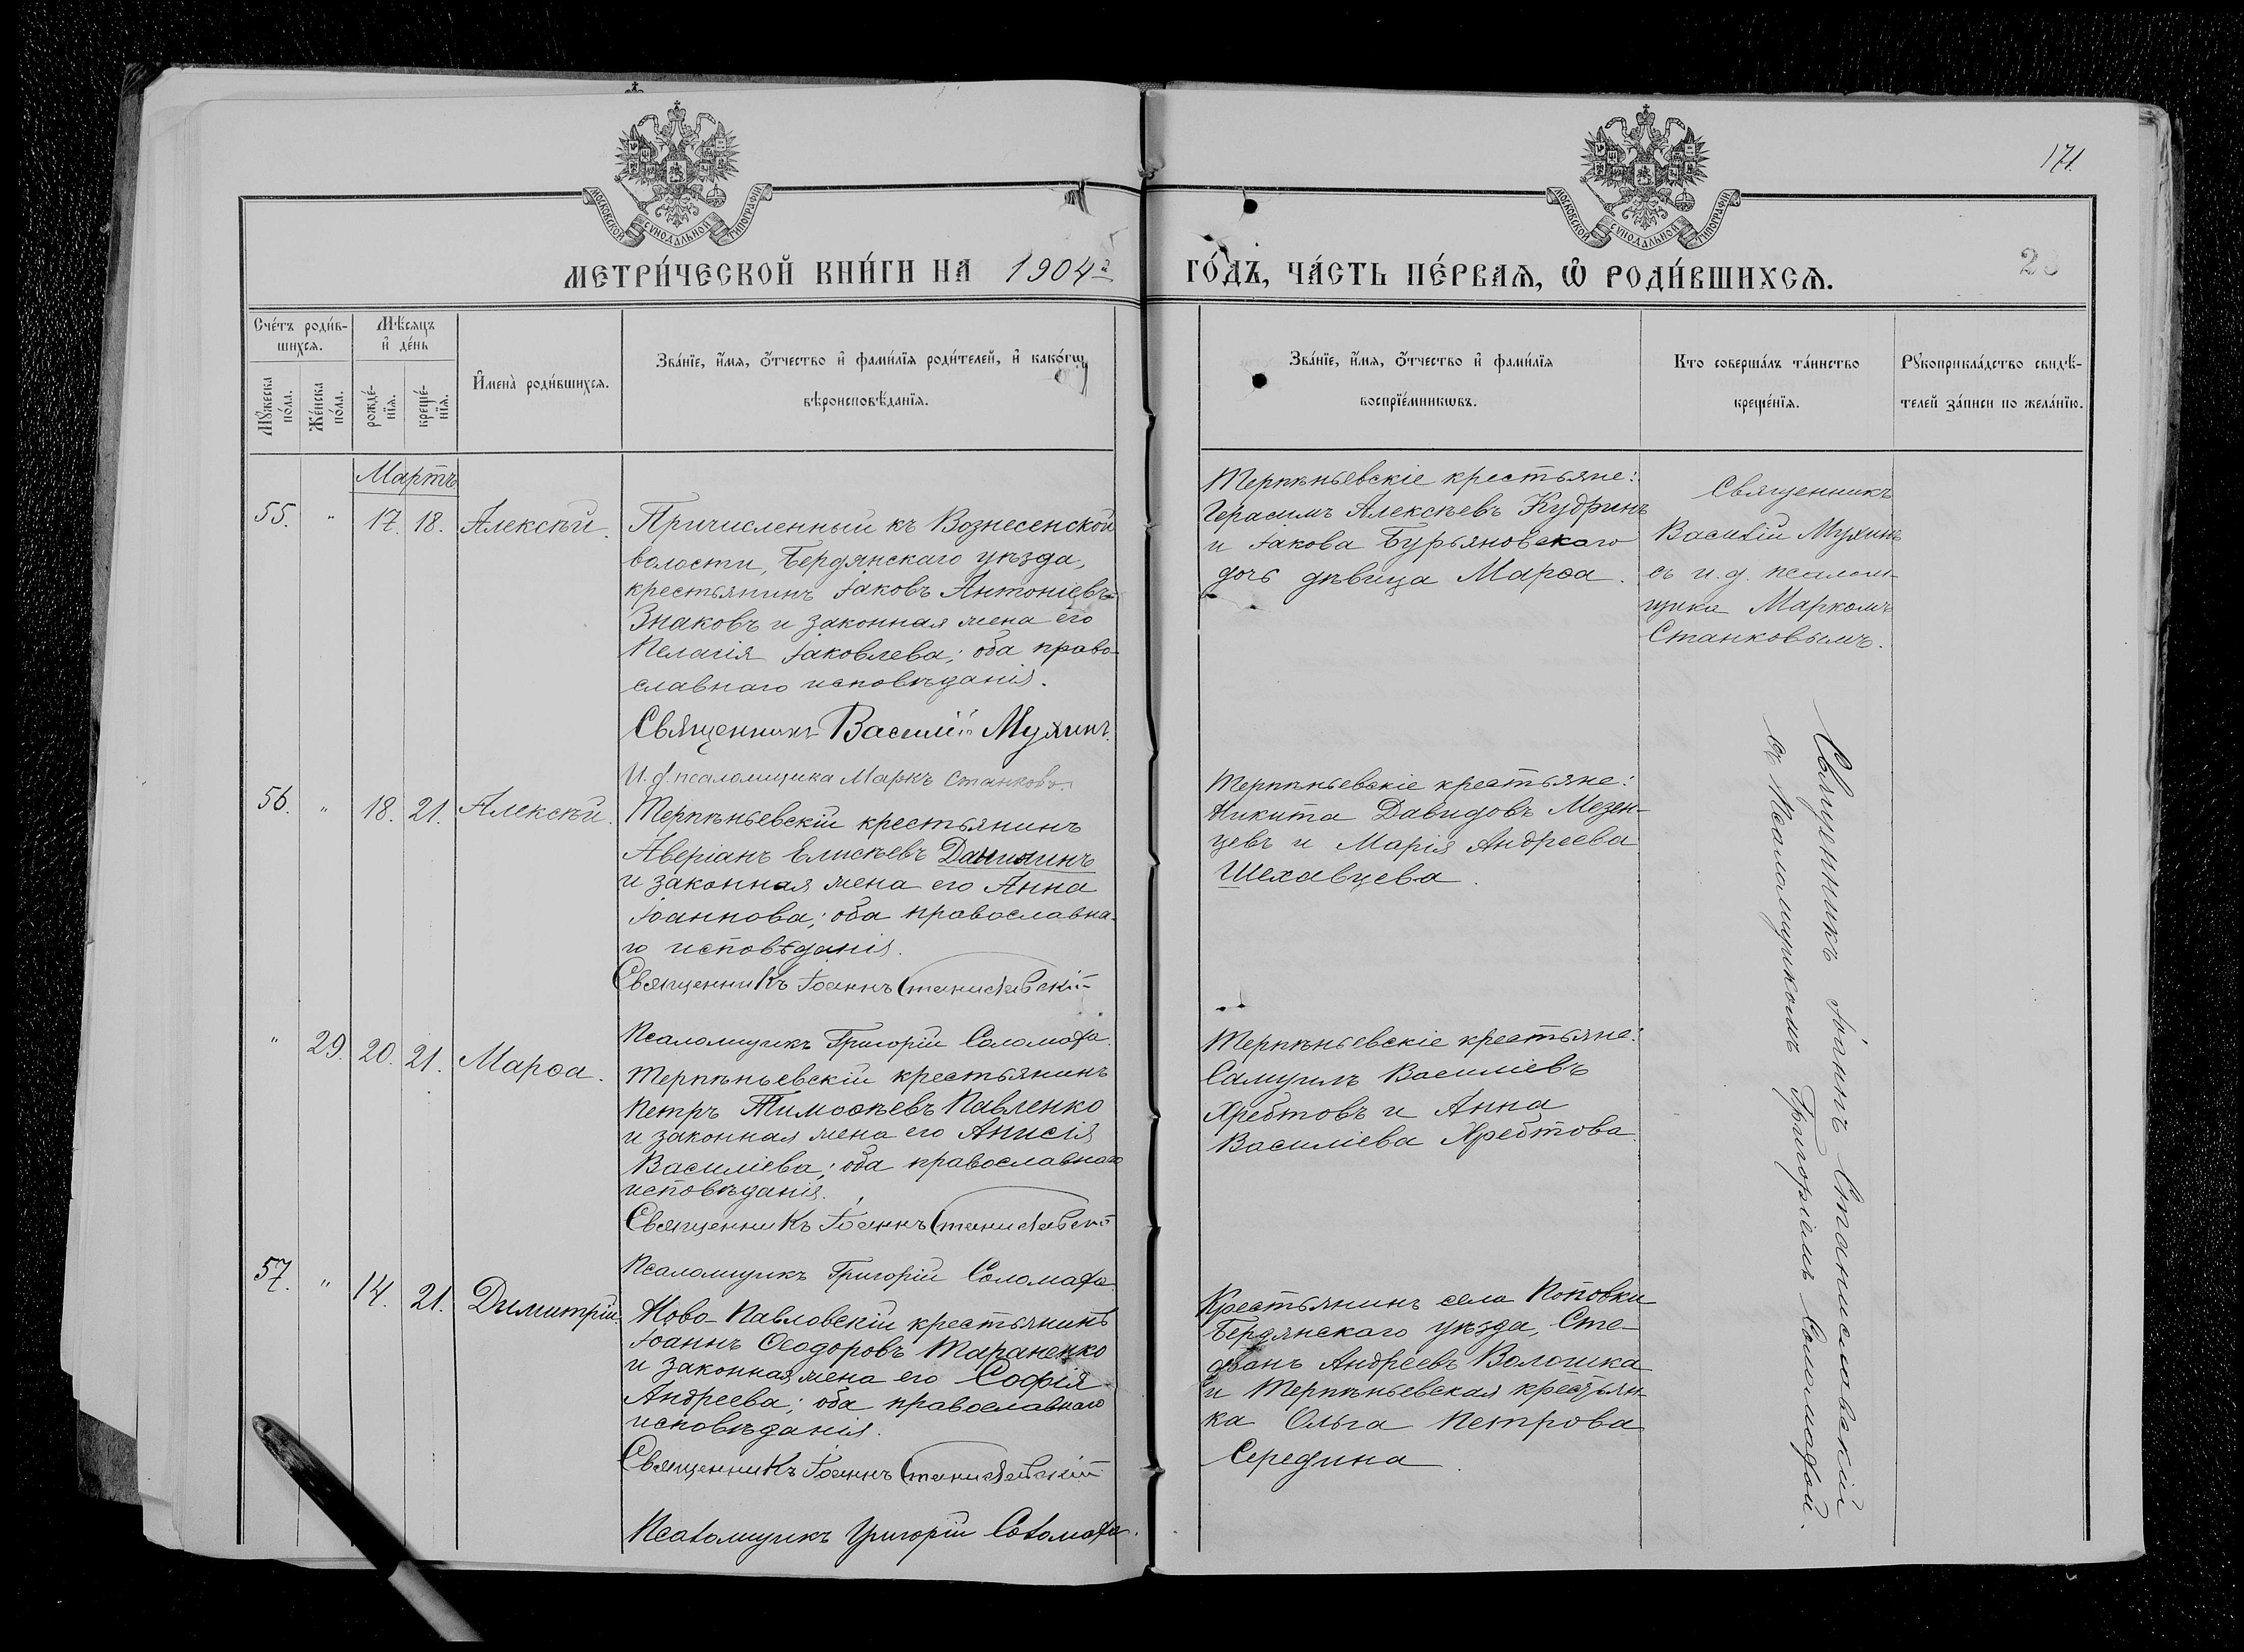 171.
МОСКОВСКОЙ СѴНОДАЛЬНОЙ ТИПОГРАФІИ
МОСКОВСКОЙ СѴНОДАЛЬНОЙ ТИПОГРАФІИ
МЕТРИ́ЧЕСКОЙ КНИ́ГИ НА 1904й
ГО́ДЪ, ЧА́СТЬ ПЕ́РВАѦ, Ѽ РОДИ́ВШИХСѦ.
Сче́тъ роди́в-
шихсѧ.
Мꙋ́жеска по́ла.
Же́нска по́ла.
Мѣ́сѧцъ
и҆ де́нь
рожде́-
нїѧ.
креще́-
нїѧ.
И҆мена̀ роди́вшихсѧ.
Зва́нїе, и҆́мѧ, ѻ҆́тчество и҆ фами́лїѧ роди́телей, и҆ како́гѡ
вѣроисповѣ́данїѧ.
Зва́нїе, и҆́мѧ, ѻ҆́тчество и҆ фами́лїѧ
воспрїе́мникѡвъ.
Кто соверша́лъ та́инство
креще́нїѧ.
Рꙋкоприкла́дство свидѣ́-
телей за́писи по жела́нїю.
Мартъ
55. " 17. 18. Алексѣй.
Причисленный къ Вознесенской
волости, Бердянскаго уѣзда,
крестьянинъ Іаковъ Антоніевъ
Знаковъ и законная жена его
Пелагія Іаковлева; оба право-
славнаго исповѣданія.
Священникъ Василій Мухинъ.
И. д. псаломщика Маркъ Станковъ.
Терпѣньевскіе крестьяне:
Герасимъ Алексѣевъ Кудринъ
и Іакова Бурьяновскаго
дочь дѣвица Марѳа.
Священникъ
Василій Мухинъ
съ и. д. псалом-
щика Маркомъ
Станковымъ.
56. " 18. 21. Алексѣй.
Терпѣньевскій крестьянинъ
Аверіанъ Елисѣевъ Данилинъ
и законная жена его Анна
Іоаннова; оба православна-
го исповѣданія.
Священникъ Іоаннъ Станиславскій
Псаломщикъ Григорій Соломаха.
Терпѣньевскіе крестьяне:
Никита Давидовъ Мезен-
цевъ и Марія Андреева
Шехавцева.
" 29. 20. 21. Марѳа.
Терпѣньевскій крестьянинъ
Петръ Тимоѳѣевъ Павленко
и законная жена его Анисія
Василіева; оба православнаго
исповѣданія.
Священникъ Іоаннъ Станиславскій
Псаломщикъ Григорій Соломаха.
Терпѣньевскіе крестьяне:
Самуилъ Василіевъ
Хребтовъ и Анна
Василіева Хребтова.
57. " 14. 21. Димитрій.
Ново-Павловскій крестьянинъ
Іоаннъ Ѳеодоровъ Тараненко
и законная жена его Софія
Андреева; оба православнаго
исповѣданія.
Священникъ Іоаннъ Станиславскій
Псаломщикъ Григорій Соломаха.
Крестьянинъ села Поповки
Бердянскаго уѣзда, Сте-
фанъ Андреевъ Волошка
и Терпѣньевская крестьян-
ка Ольга Петрова
Середина.
Священникъ Іоаннъ Станиславскій
съ псаломщикомъ Григоріемъ Соломахой.